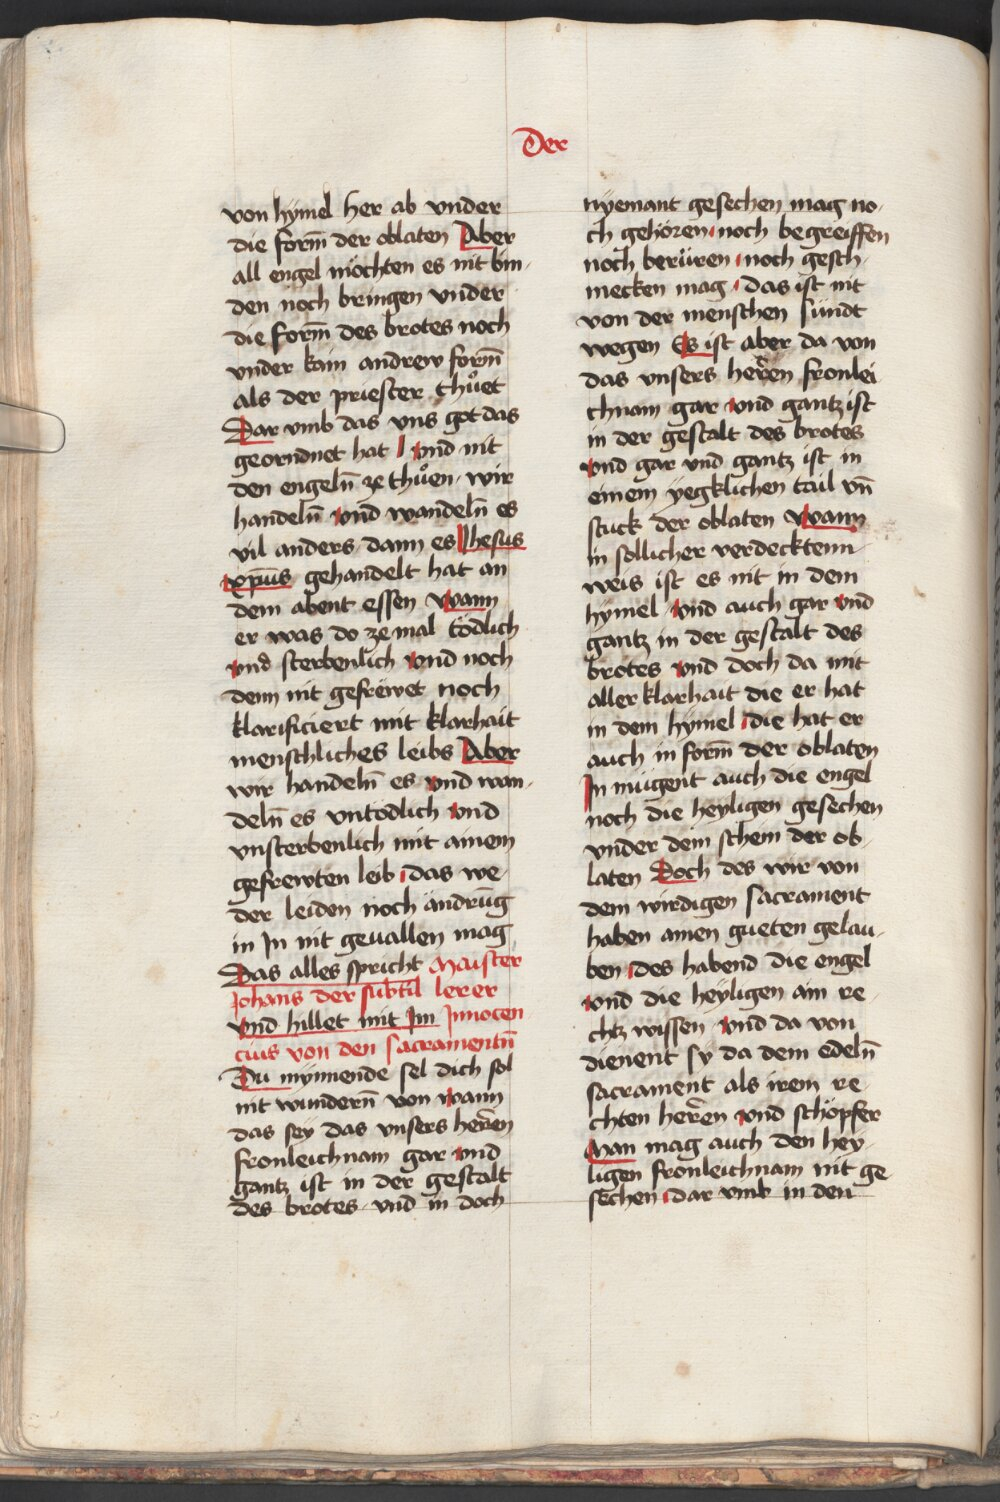 Der
von hymel her ab vnder
die form̄ der oblaten Aber
all engel möchten es nit bin-
den noch bringen vnder
die form̄ des brotes noch
vnder kain andrew form̄
als der priester thůet
Dar vmb das vns got das
georndnet hat vnd nit
den engeln̄ ze thůen. wir
handeln̄ vnd wandeln̄ es
vil anders dann es Jhesus
xp̄us gehandelt hat an
dem abent essen wann
er was do zemal tödlich
vnd sterbenlich vnd noch
denn nit gefrëwet noch
klarificiert mit klarhait
menschliches leibs Aber
wir handeln̄ es vnd wan-
deln̄ es vntodlich vnd
vnsterbenlich mit ainem
gefrewten leib das we-
der leiden noch ändrūg
in Jn nit geuallen mag
Das alles spricht Maister
Johans der subtil lerer
vnd hillet mit Jm Jnnocen
cius von den sacramentn̄
Du mynnende sel dich sol
nit wundern̄ von wann
das sey das vnsers herren
fronleichnam gar vnd
gantz ist in der gestalt
des brotes vnd in doch
nyemant gesechen mag no-
ch gehören noch begreiffen
noch berüren noch gesch-
mecken mag das ist nit
von der menschen sündt
wegen Es ist aber da von
das vnsers herren fronlei
chnam gar vnd gantz ist
in der gestalt des brotes
vnd gar vnd gantz ist in
einem yegklichen tail vn̄
stuck der oblaten wann
in sollicher verdecktenn
weis ist es nit in dem
hymel vnd auch gar vnd
gantz in der gestalt des
brotes vnd doch da mit
aller klarhait die er hat
in dem hymel die hat er
auch in form̄ der oblaten
Jn mügent auch die engel
noch die heyligen gesechen
vnder dem schein der ob-
laten Doch des wir von
dem wirdigen sacrament
haben ainen gueten gelau-
ben des habend die engel
vnd die heyligen ain re-
chtz wissen vnd da von
dienent sy da dem edeln̄
sacrament als irem re-
chten herren vnd schöpfer
Man mag auch den hey-
ligen fronleichnam nit ge
sechen dar vmb in den